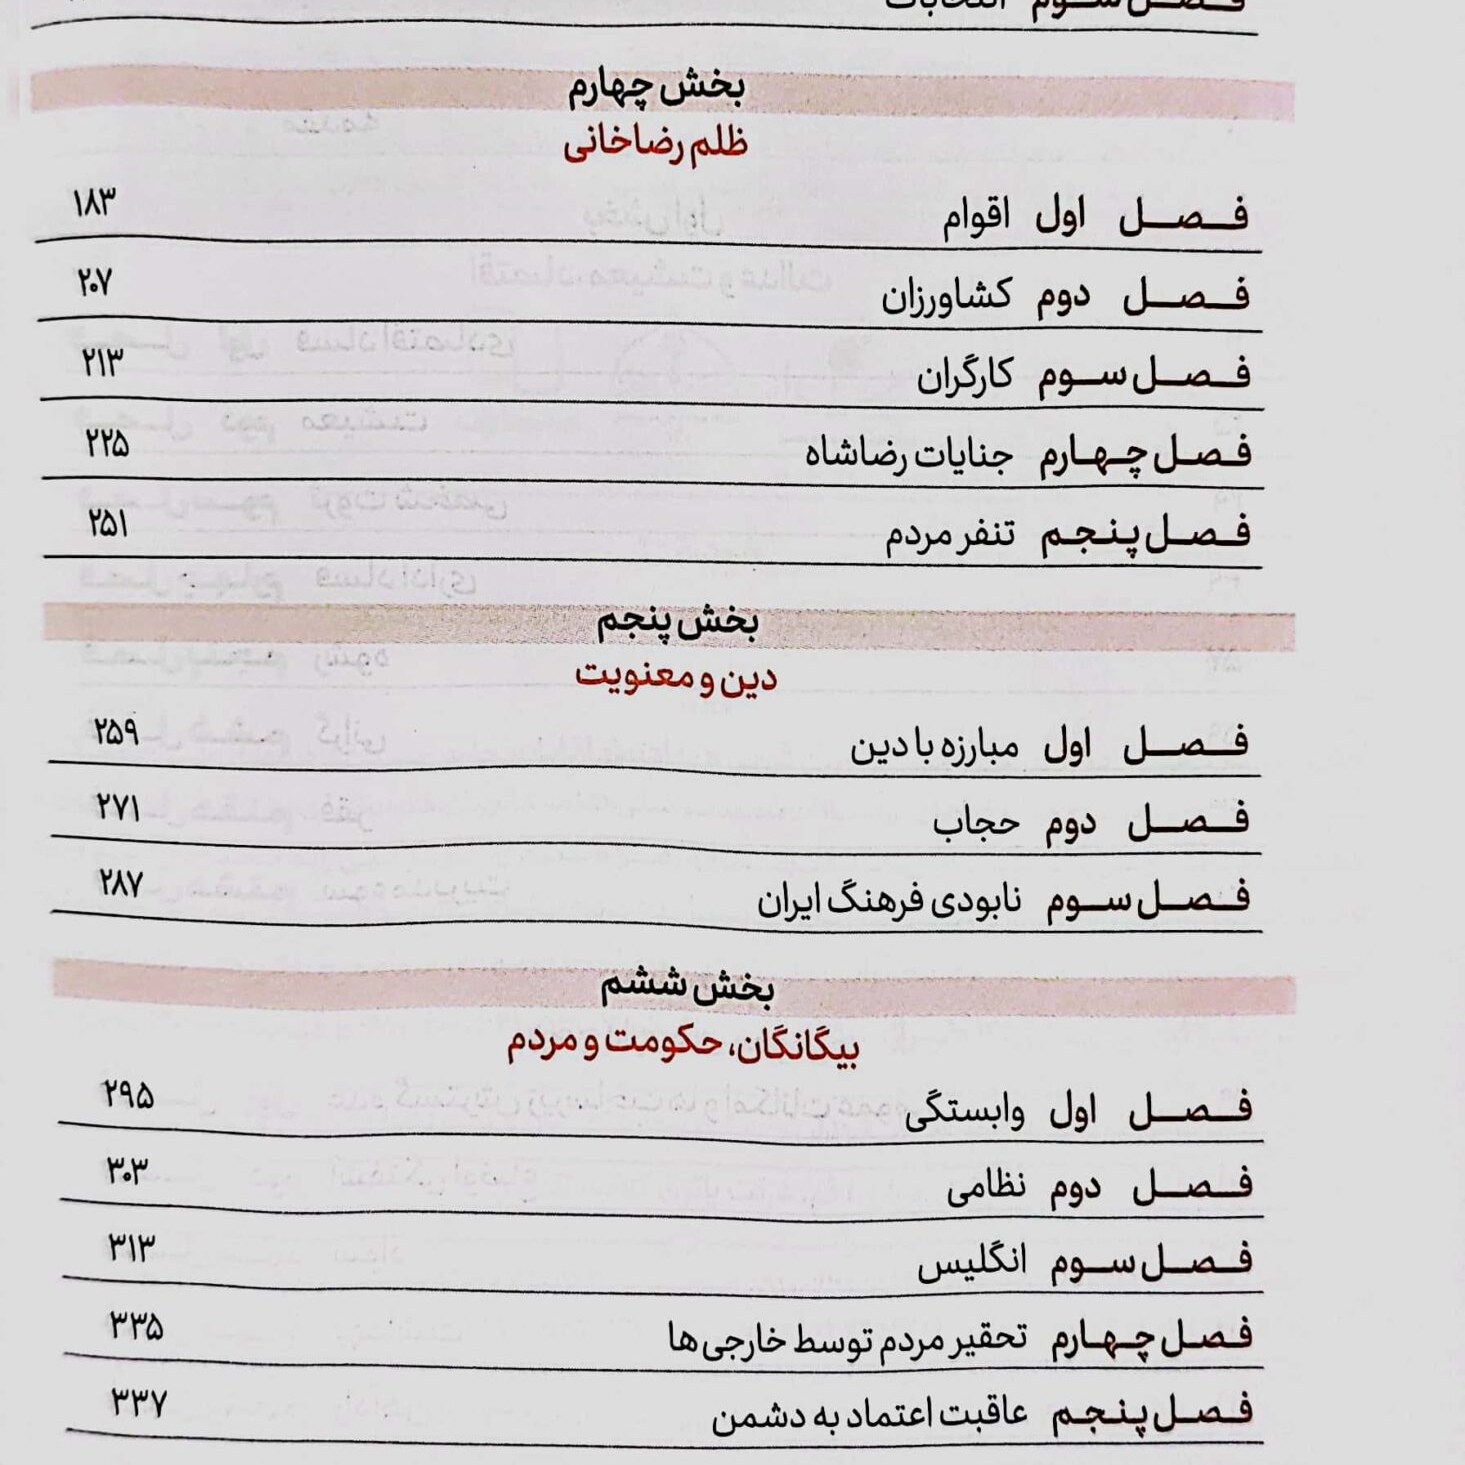 فصل سوم انتخابات
بخش چهارم
ظلم رضاخانی
فصل اول اقوام ۱۸۳
فصل دوم کشاورزان ۲۰۷
فصل سوم کارگران ۲۱۳
فصل چهارم جنایات رضاشاه ۲۲۵
فصل پنجم تنفر مردم ۲۵۱
بخش پنجم
دین و معنویت
فصل اول مبارزه با دین ۲۵۹
فصل دوم حجاب ۲۷۱
فصل سوم نابودی فرهنگ ایران ۲۸۷
بخش ششم
بیگانگان، حکومت و مردم
فصل اول وابستگی ۲۹۵
فصل دوم نظامی ۳۰۳
فصل سوم انگلیس ۳۱۳
فصل چهارم تحقیر مردم توسط خارجی‌ها ۳۳۵
فصل پنجم عاقبت اعتماد به دشمن ۳۳۷